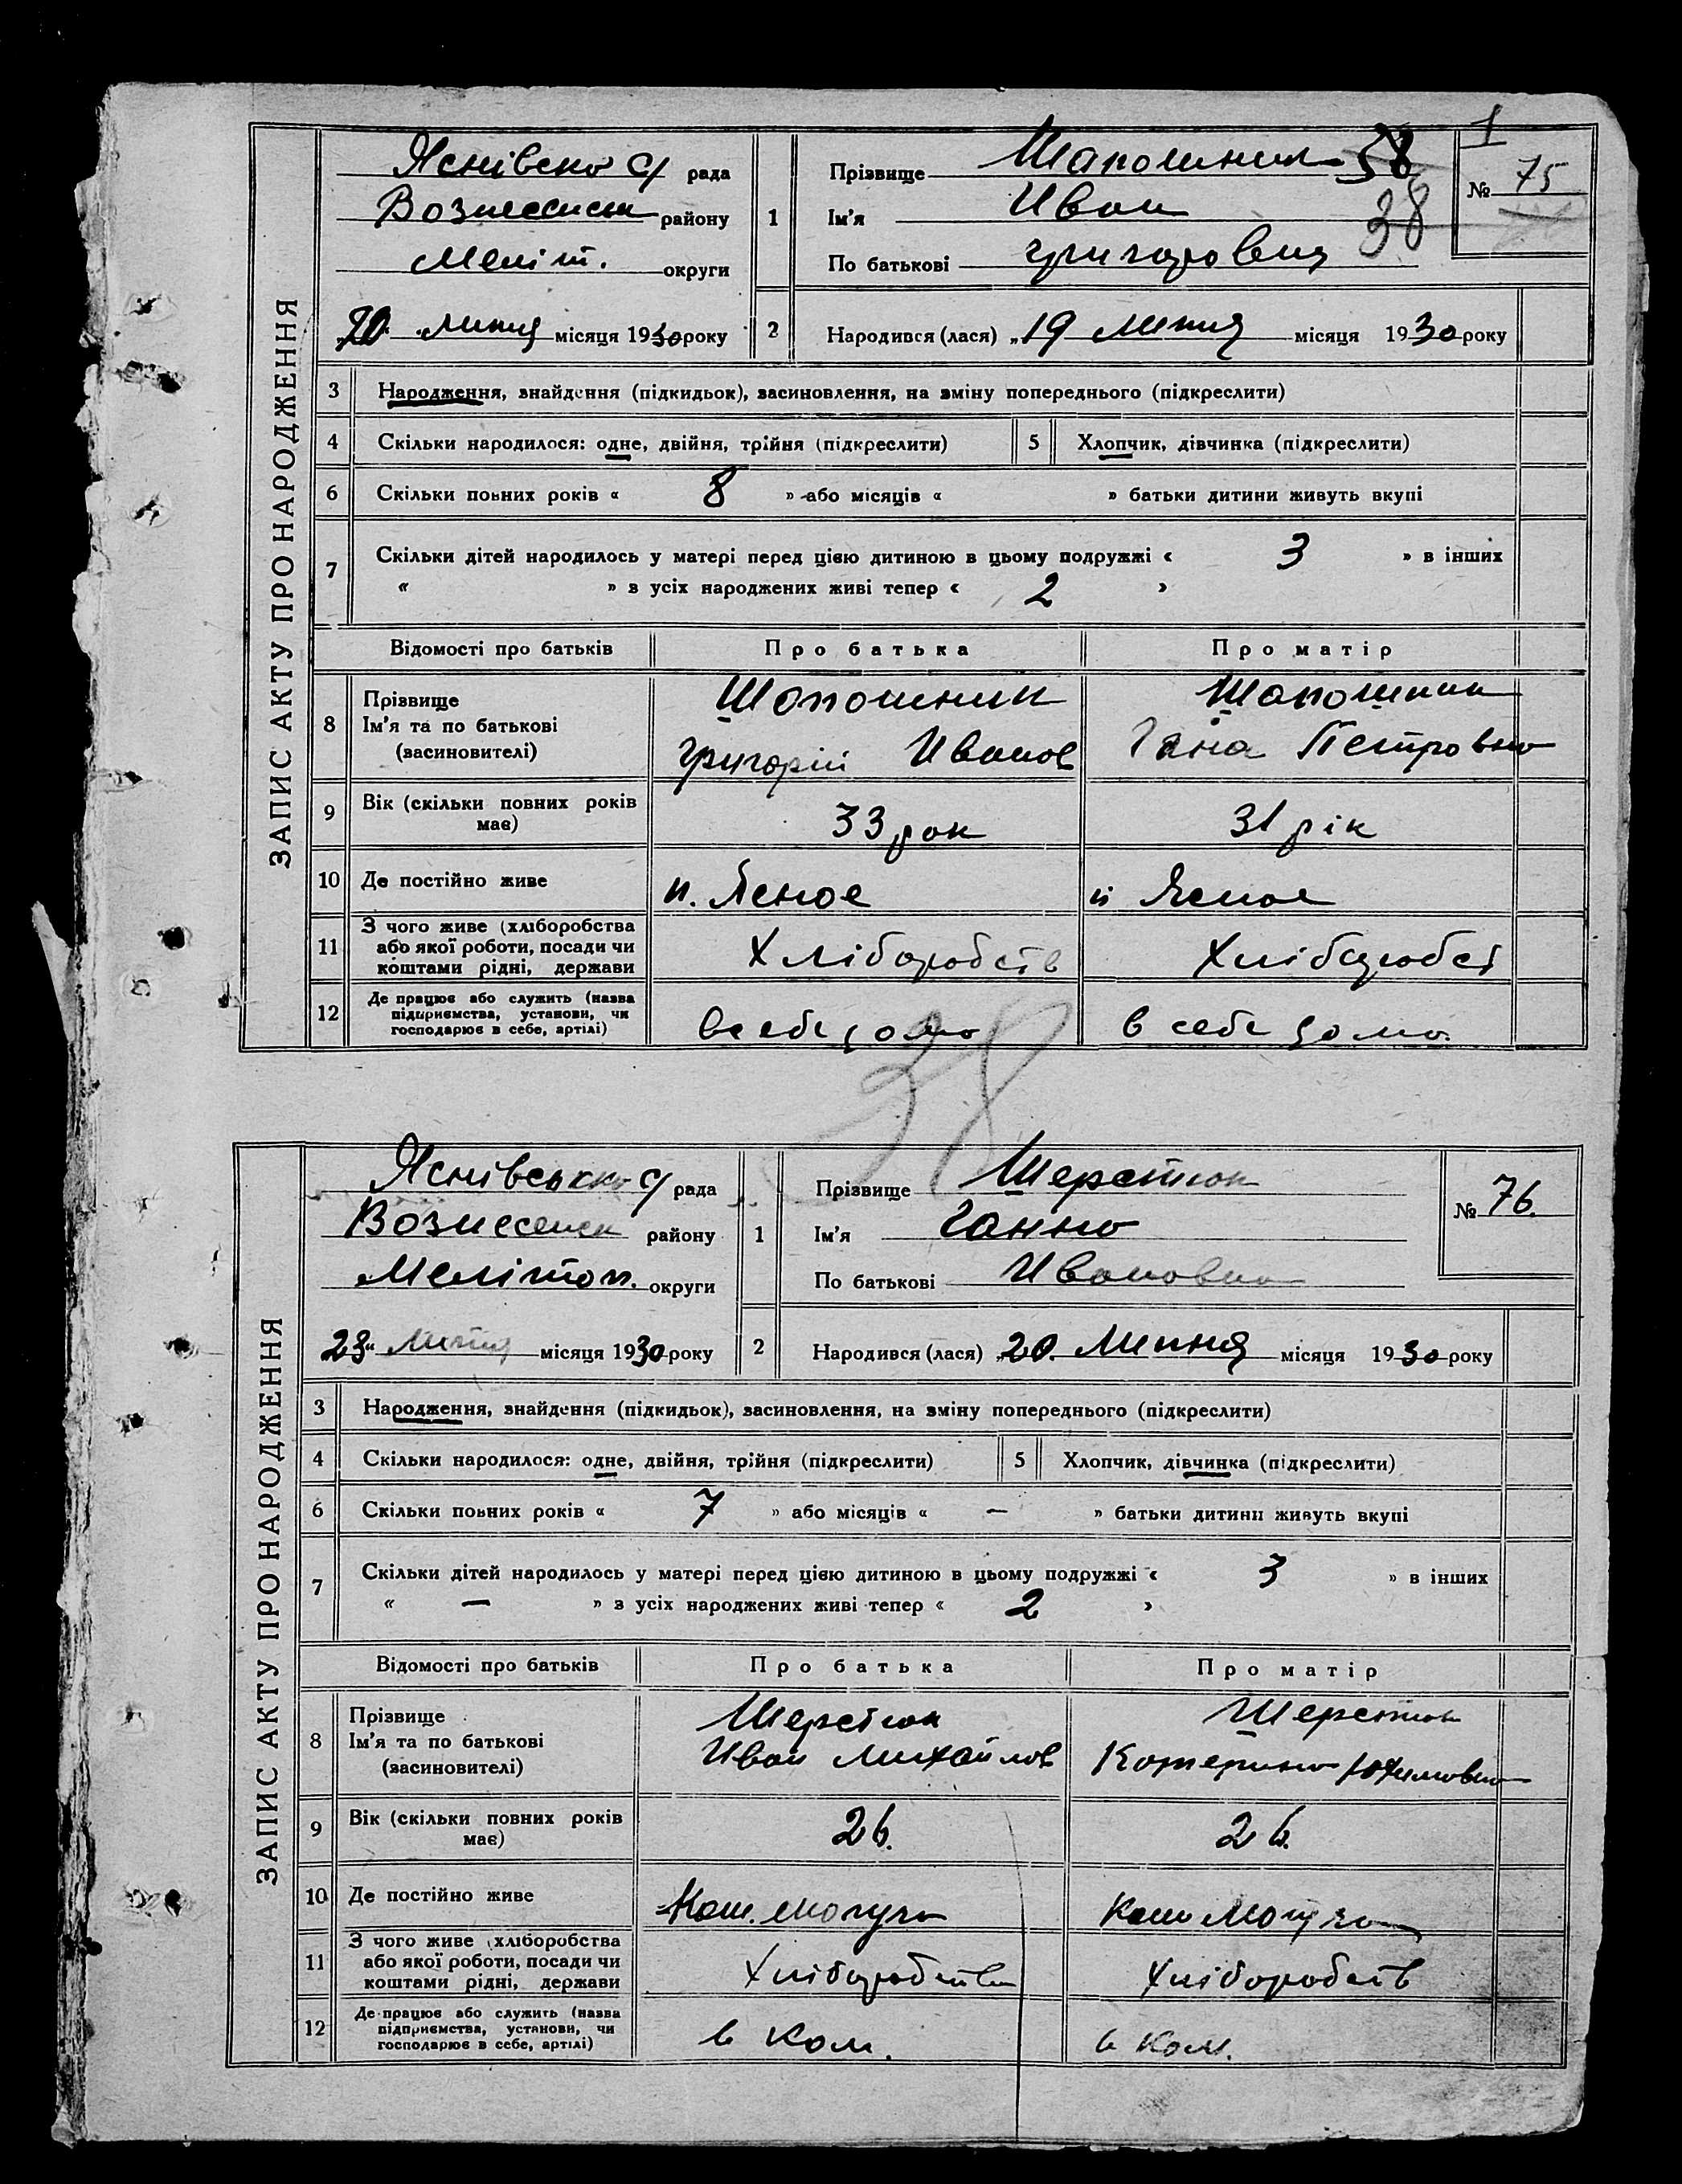 ЗАПИС АКТУ ПРО НАРОДЖЕННЯ
Яснівско с/ рада
Вознесенськ району
Меліт. округи
1
Прізвище Шапошник 58
Ім'я Иван 38
По батькові Григорович
1
№ 75
20 липня місяця 1930 року
2
Народився (лася) „19 Липня місяця 1930 року
3 Народження, знайдення (підкидьок), засиновлення, на зміну попереднього (підкреслити)
4 Скільки народилося: одне, двійня, трійня (підкреслити) 5 Хлопчик, дівчинка (підкреслити)
6 Скільки повних років « 8 » або місяців « » батьки дитини живуть вкупі
7 Скільки дітей народилось у матері перед цією дитиною в цьому подружжі « 3 » в інших
« » з усіх народжених живі тепер « 2 »
Відомості про батьків Про батька Про матір
8 Прізвище
Ім'я та по батькові
(засиновителі)
Шопошник
Григорій Иванов
Шапошник
Гана Петровно
9 Вік (скільки повних років
має)
33 рок 31 рік
10 Де постійно живе п. Ясное п Ясное
11 З чого живе (хліборобства
або якої роботи, посади чи
коштами рідні, держави
Хліборобств Хліборобст
12 Де працює або служить (назва
підприємства, установи, чи
господарює в себе, артілі)
в себе дома в себе дома.
38
ЗАПИС АКТУ ПРО НАРОДЖЕННЯ
Яснівсько с/ рада
Вознесенск району
Мелітоп. округи
1
Прізвище Шерстюк
Ім'я Ганно
По батькові Ивановно
№ 76.
23„ Липня місяця 1930 року
2
Народився (лася) „20. Липня місяця 1930 року
3 Народження, знайдення (підкидьок), засиновлення, на зміну попереднього (підкреслити)
4 Скільки народилося: одне, двійня, трійня (підкреслити) 5 Хлопчик, дівчинка (підкреслити)
6 Скільки повних років « 7 » або місяців « — » батьки дитини живуть вкупі
7 Скільки дітей народилось у матері перед цією дитиною в цьому подружжі « 3 » в інших
« — » з усіх народжених живі тепер « 2 »
Відомості про батьків Про батька Про матір
8 Прізвище
Ім'я та по батькові
(засиновителі)
Шерстюк
Иван Михайлов
Шерстюк
Котерино Юхимовно
9 Вік (скільки повних років
має)
26. 26.
10 Де постійно живе
11 З чого живе (хліборобства
або якої роботи, посади чи
коштами рідні, держави
Хліборобства Хліборобств
12 Де працює або служить (назва
підприємства, установи, чи
господарює в себе, артілі)
в Ком. в Ком.